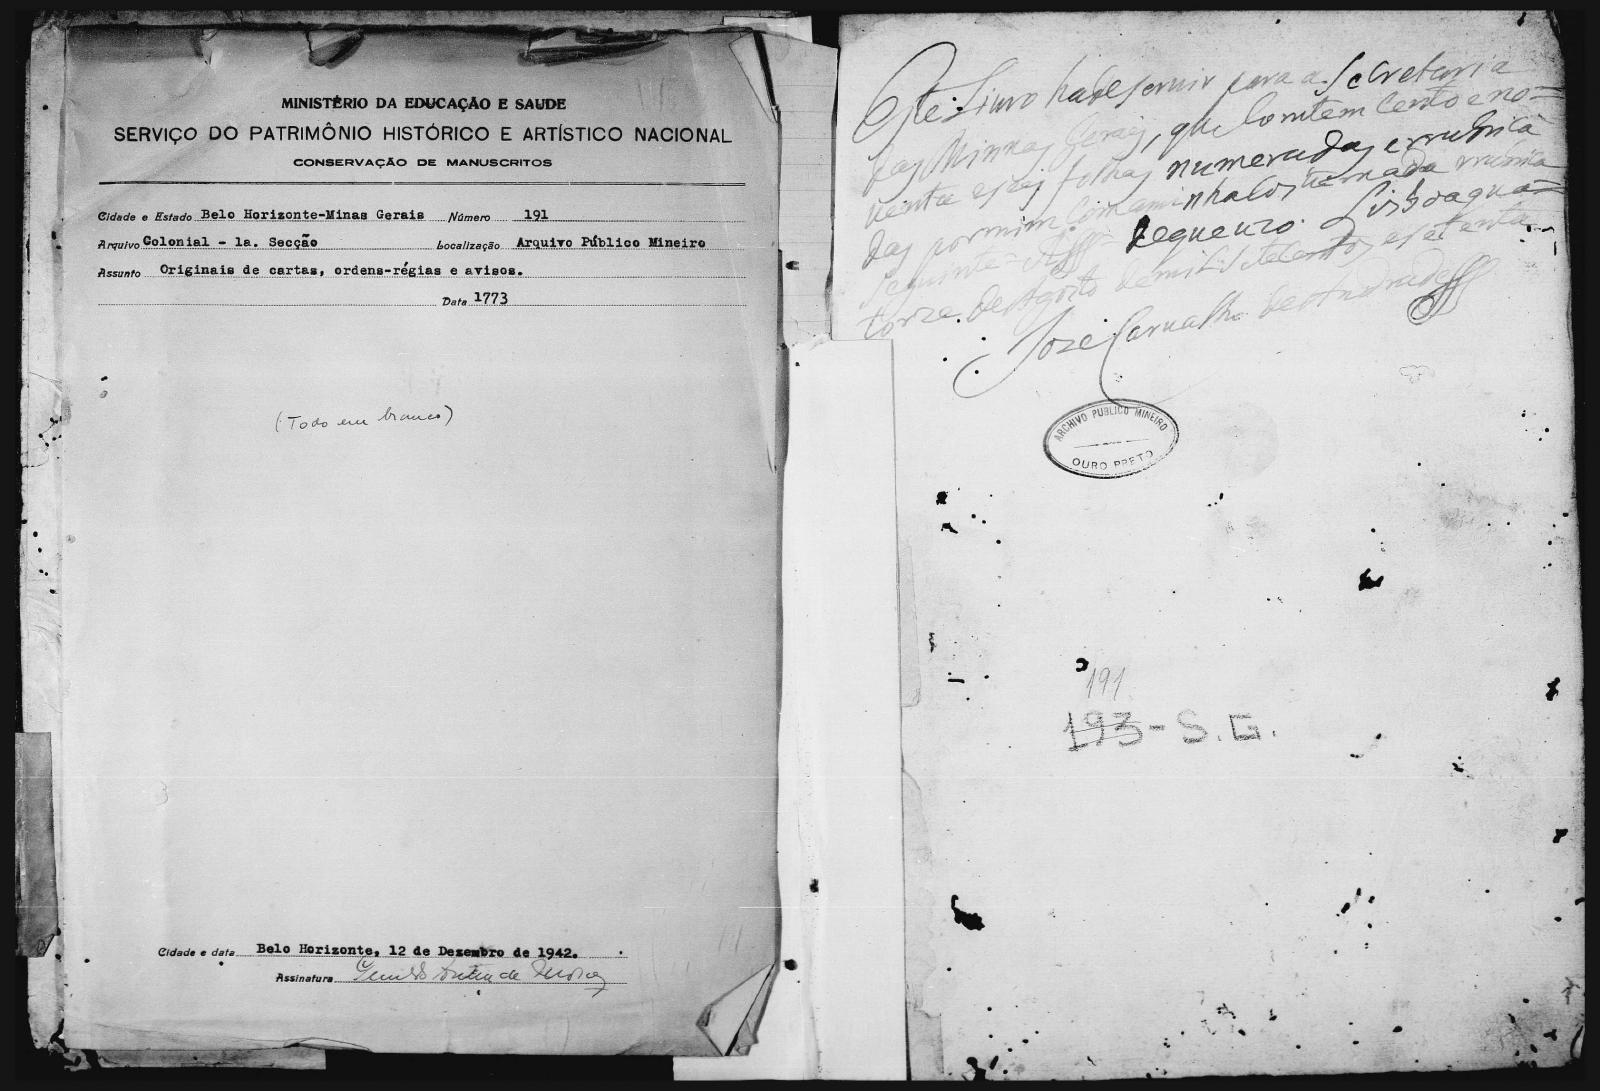 MINISTÉRIO DA EDUCAÇÃO E SAUDE
SERVIÇO DO PATRIMÔNIO HISTÓRICO E ARTÍSTICO NACIONAL
CONSERVAÇÃO DE MANUSCRITOS
Cidade e Estado Belo Horizonte-Minas Gerais Número 191
Arquivo Colonial - 1a. Secção Localização Arquivo Público Mineiro
Assunto Originais de cartas, ordens-régias e avisos.
Data 1773
(Todo em branco)
Cidade e data Belo Horizonte, 12 de Dezembro de 1942.
Assinatura
Este Livro hade servir para a Secretaria
das Minnas Geraes, que Contem Cento e no=
venta e seis folhas numeradas e rubrica
das por mim Com a minha Costumada rubrica
Sequeiro. Lisboa qua=
torze de Agosto de mil Setecentos e setenta
Joze Carvalho de Andrade
ARCHIVO PUBLICO MINEIRO
OURO PRETO
191
193 - S. G.